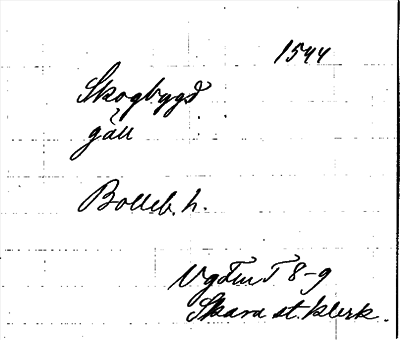 1544
Skogbygd
gäll
Bolleb. h.
VgFmT 8-9
Skara st. klerk.